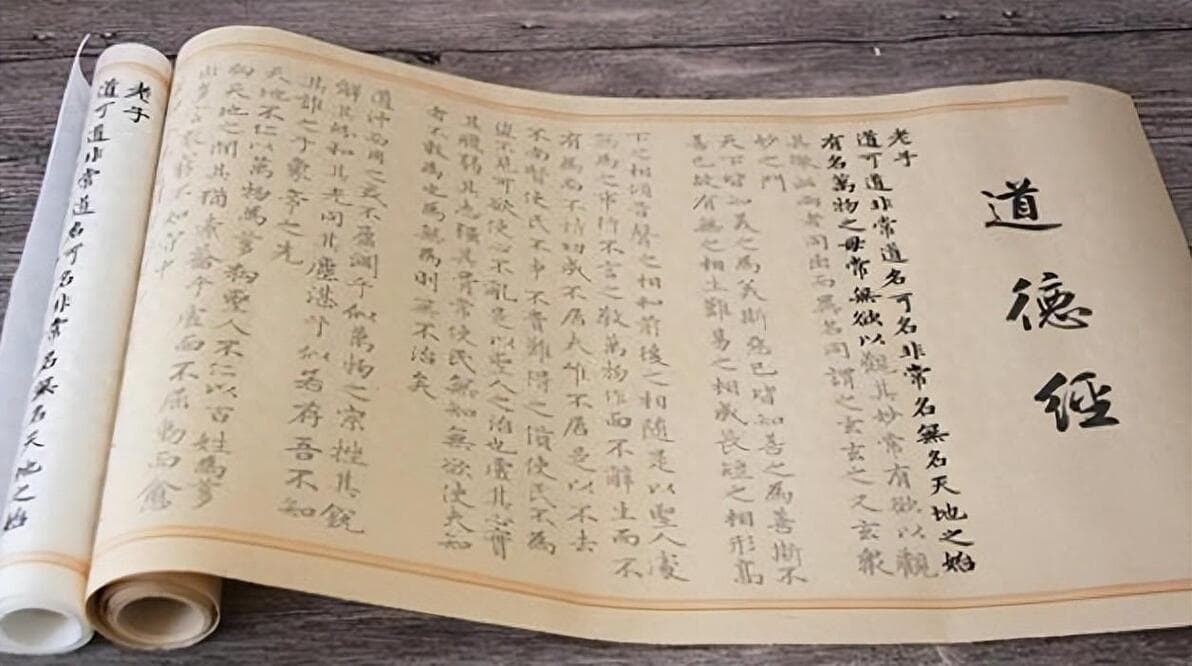 道德經
老子
道可道非常道名可名非常名無名天地之始
有名萬物之母常無欲以觀其妙常有欲以觀
其徼此兩者同出而異名同謂之玄玄之又玄眾
妙之門
天下皆知美之為美斯惡已皆知善之為善斯不
善已故有無之相生難易之相成長短之相形高
下之相傾音聲之相和前後之相隨是以聖人處
無為之事行不言之教萬物作而不辭生而不
有為而不恃功成不居夫惟不居是以不去
不尚賢使民不爭不貴難得之貨使民不為
盜不見可欲使心不亂是以聖人之治也虛其心實
其腹弱其志強其骨常使民無知無欲使夫知
者不敢為也為無為則無不治矣
道沖而用之又不盈淵乎似萬物之宗挫其銳
解其紛和其光同其塵湛兮似若存吾不知
其誰之子象帝之先
天地不仁以萬物為芻狗聖人不仁以百姓為芻
狗天地之間其猶橐籥乎虛而不屈動而愈
出多言數窮不如守中
老子
道可道非常道名可名非常名無名天地之始